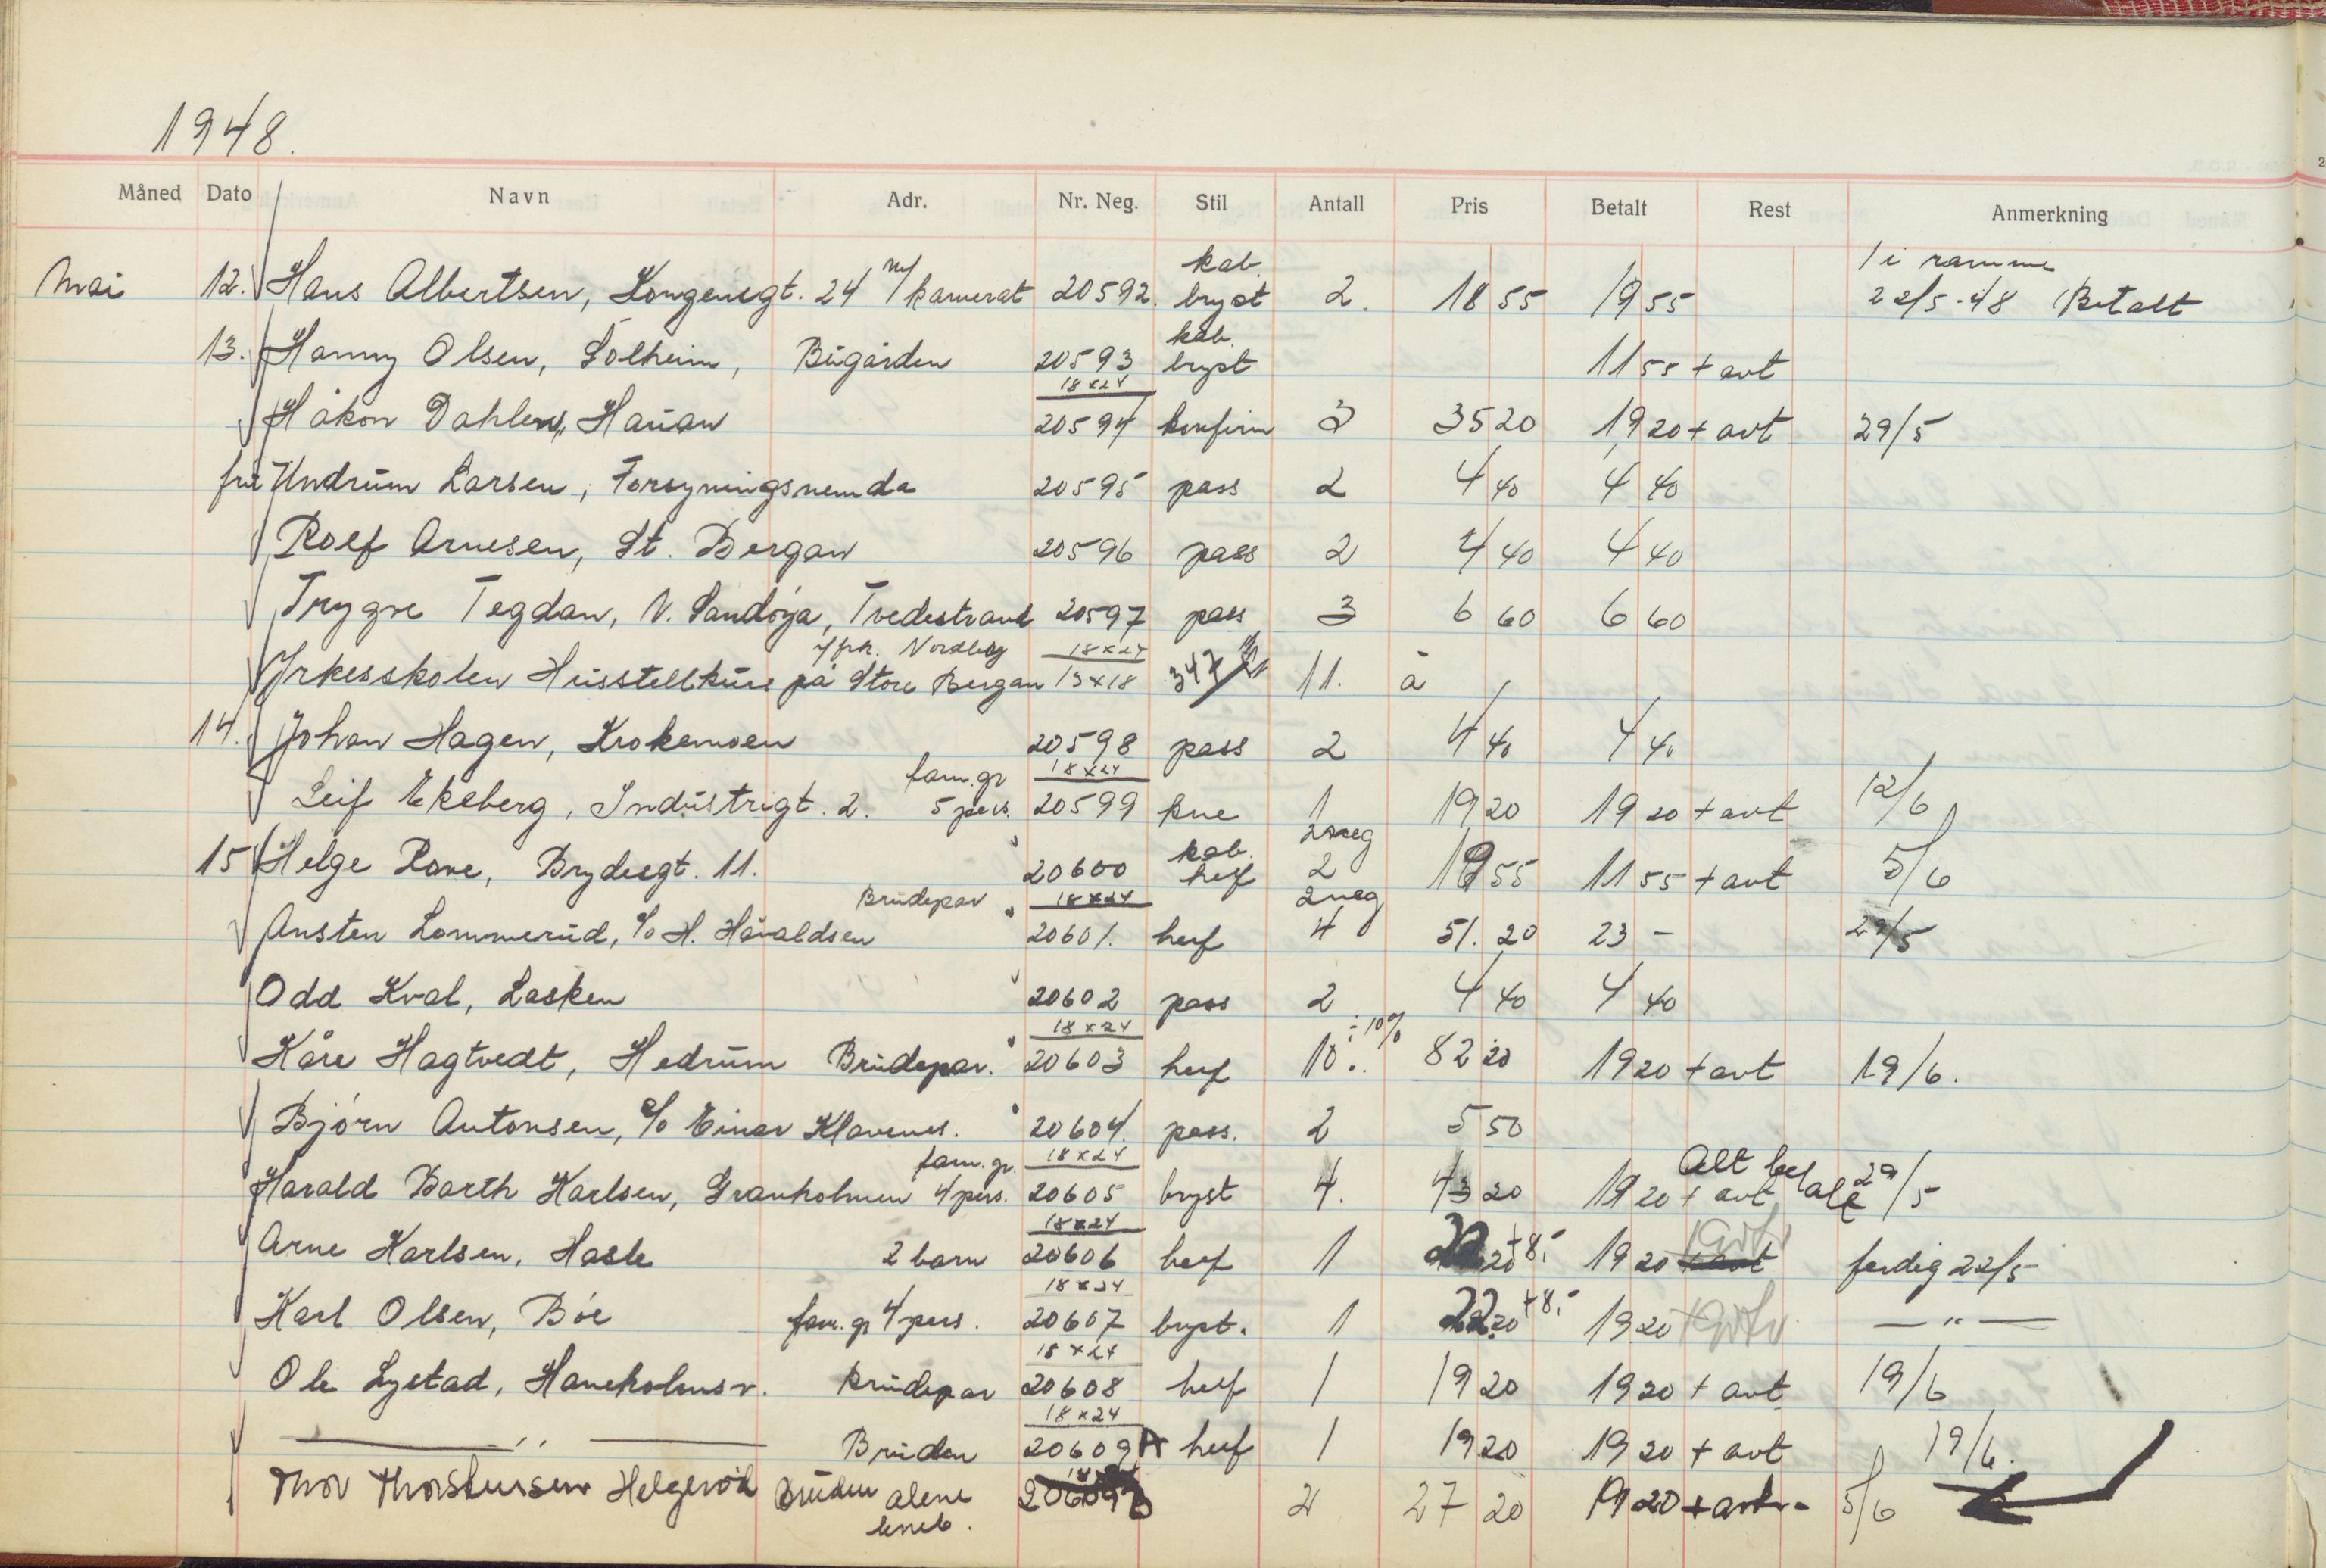 1948.
Måned Dato Navn Adr. Nr. Neg. Stil Antall Pris Betalt Rest Anmerkning
Mai 12. Hans Albertsen, Kongensgt. 24 m/ kamerat 20592. kab. bryst 2. 18 55 19 55 1 i ramme 22/5-48 Betalt
13. Hanny Olsen, Solheim, Bügården 20593 kab. bryst 11 55 + avt
18x24
Håkon Dahlen, Hauan 20594 konfirm 3 35 20 19 20 + avt 29/5
fru Undrüm Larsen, Forsyningsnemda 20595 pass 2 4 40 4 40
Rolf Arnesen, St. Bergan 20596 pass 2 4 40 4 40
Trygve Tegdan, V. Sandøya, Tvedestrand 20597 pass 3 6 60 6 60
v/ frk. Nordby 18x24
Yrkesskolen Hüsstellkürs på Store Bergan 13x18 347 11. à
14. Johan Hagen, Krokemoen 20598 pass 2 4 40 4 40
fam. gr 18x24
Leif Ekeberg, Indüstrigt. 2. 5 pers. 20599 kne 1 19 20 19 20 + avt 12/6
15 Helge Rove, Brydesgt. 11. 20600 kab. helf 2 neg 2 55 11 55 + avt 5/6
Brüdepar 18x24 2 neg
Austen Lommerüd, c/o H. Håvaldsen 20601. helf 4 51. 20 23 - 29/5
Odd Kval, Lasken 20602 pass 2 4 40 4 40
18x24 ÷ 10%
Kåre Hagtvedt, Hedrüm Brüdepar. 20603 helf 10. 82 20 19 20 + avt 19/6.
Bjørn Antonsen, c/o Einar Klavenes. 20604. pass. 2 5 50
fam. gr. 18x24 Alt betalt
Harald Barth Karlsen, Granholmen 4 pers. 20605 bryst 4. 43 20 19 20 + avt 29/5
18x24
Arne Karlsen, Hasle 2 barn 20606 helf 1 22 20 + 8,- 19 20 + avt ferdig 22/5
18x24
Karl Olsen, Bøe fam. gr 4 pers. 20607 bryst. 1 22 20 + 8,- 19 20 — " —
18x24
Ole Lystad, Haneholmsv. Brüdepar 20608 helf 1 19 20 19 20 + avt 19/6
18x24
— " — Brüden 20609 A helf 1 19 20 19 20 + avt 19/6.
Thor Thorsteinsen Helgerød Brüden alene 20609 B 2 27 20 19 20 + avt. 5/6